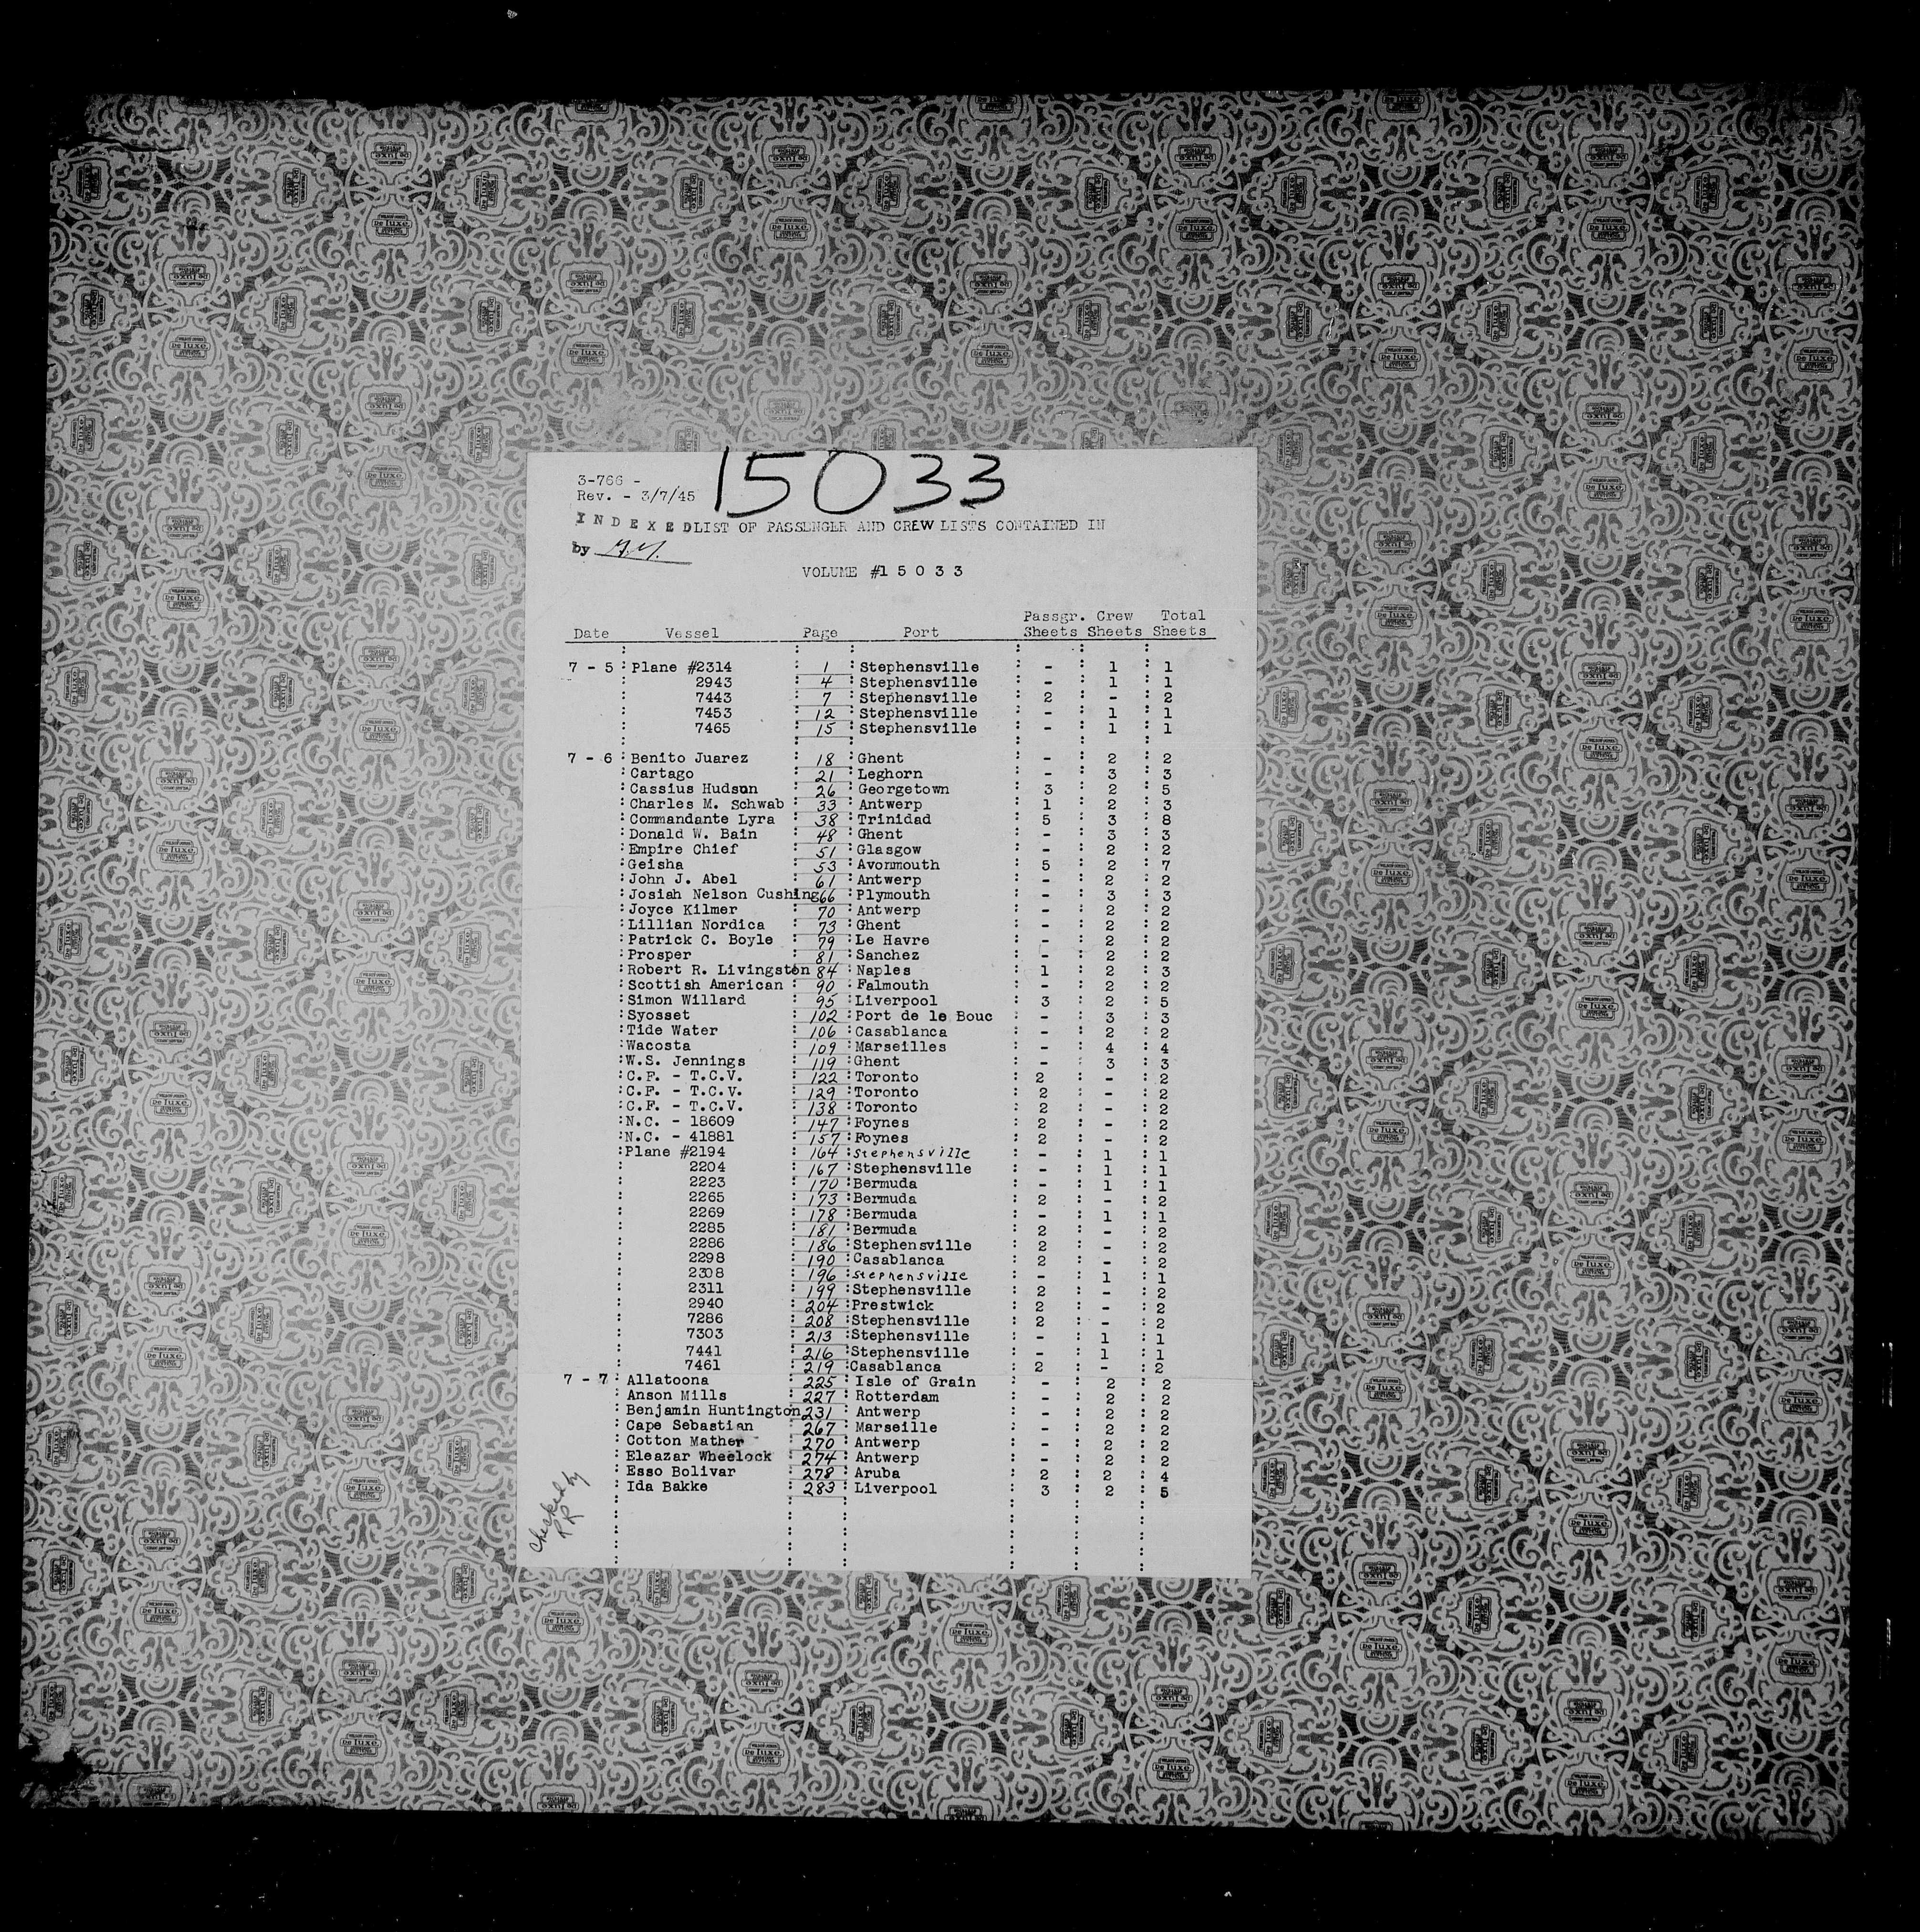 15033
3-766 -
Rev. - 3/7/45
INDEXED LIST OF PASSENGER AND CREW LISTS CONTAINED IN
by
VOLUME #15033
Passgr. Crew Total
Date Vessel Page Port Sheets Sheets Sheets
7 - 5 : Plane #2314 : 1 : Stephensville : - : 1 : 1
: 2943 : 4 : Stephensville : - : 1 : 1
: 7443 : 7 : Stephensville : 2 : - : 2
: 7453 : 12 : Stephensville : - : 1 : 1
: 7465 : 15 : Stephensville : - : 1 : 1
7 - 6 : Benito Juarez : 18 : Ghent : - : 2 : 2
: Cartago : 21 : Leghorn : - : 3 : 3
: Cassius Hudson : 26 : Georgetown : 3 : 2 : 5
: Charles M. Schwab : 33 : Antwerp : 1 : 2 : 3
: Commandante Lyra : 38 : Trinidad : 5 : 3 : 8
: Donald W. Bain : 48 : Ghent : - : 3 : 3
: Empire Chief : 51 : Glasgow : - : 2 : 2
: Geisha : 53 : Avonmouth : 5 : 2 : 7
: John J. Abel : 61 : Antwerp : - : 2 : 2
: Josiah Nelson Cushing 66 : Plymouth : - : 3 : 3
: Joyce Kilmer : 70 : Antwerp : - : 2 : 2
: Lillian Nordica : 73 : Ghent : - : 2 : 2
: Patrick C. Boyle : 79 : Le Havre : - : 2 : 2
: Prosper : 81 : Sanchez : - : 2 : 2
: Robert R. Livingston 84 : Naples : 1 : 2 : 3
: Scottish American : 90 : Falmouth : - : 2 : 2
: Simon Willard : 95 : Liverpool : 3 : 2 : 5
: Syosset : 102 : Port de le Bouc : - : 3 : 3
: Tide Water : 106 : Casablanca : - : 2 : 2
: Wacosta : 109 : Marseilles : - : 4 : 4
: W.S. Jennings : 119 : Ghent : - : 3 : 3
: C.F. - T.C.V. : 122 : Toronto : 2 : - : 2
: C.F. - T.C.V. : 129 : Toronto : 2 : - : 2
: C.F. - T.C.V. : 138 : Toronto : 2 : - : 2
: N.C. - 18609 : 147 : Foynes : 2 : - : 2
: N.C. - 41881 : 157 : Foynes : 2 : - : 2
: Plane #2194 : 164 : Stephensville : - : 1 : 1
: 2204 : 167 : Stephensville : - : 1 : 1
: 2223 : 170 : Bermuda : - : 1 : 1
: 2265 : 173 : Bermuda : 2 : - : 2
: 2269 : 178 : Bermuda : - : 1 : 1
: 2285 : 181 : Bermuda : 2 : - : 2
: 2286 : 186 : Stephensville : 2 : - : 2
: 2298 : 190 : Casablanca : 2 : - : 2
: 2308 : 196 : Stephensville : - : 1 : 1
: 2311 : 199 : Stephensville : 2 : - : 2
: 2940 : 204 : Prestwick : 2 : - : 2
: 7286 : 208 : Stephensville : 2 : - : 2
: 7303 : 213 : Stephensville : - : 1 : 1
: 7441 : 216 : Stephensville : - : 1 : 1
: 7461 : 219 : Casablanca : 2 : - : 2
7 - 7 : Allatoona : 225 : Isle of Grain : - : 2 : 2
: Anson Mills : 227 : Rotterdam : - : 2 : 2
: Benjamin Huntington 231 : Antwerp : - : 2 : 2
: Cape Sebastian : 267 : Marseille : - : 2 : 2
: Cotton Mather : 270 : Antwerp : - : 2 : 2
: Eleazar Wheelock : 274 : Antwerp : - : 2 : 2
: Esso Bolivar : 278 : Aruba : 2 : 2 : 4
: Ida Bakke : 283 : Liverpool : 3 : 2 : 5
Checked by
RR